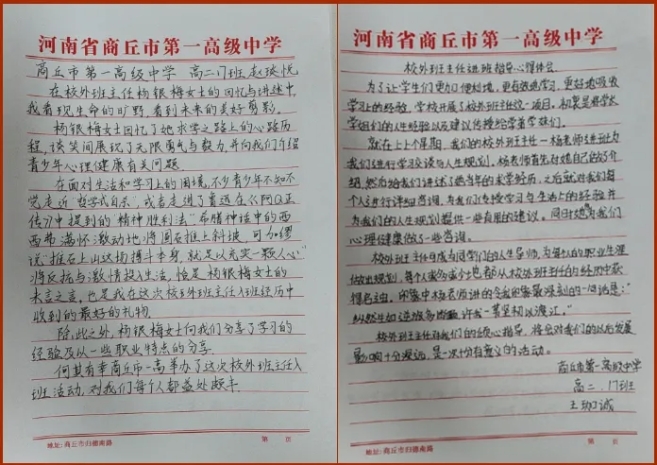 河南省商丘市第一高级中学
商丘市第一高级中学 高二17班 赵瑛悦
在校外班主任杨银梅女士的回忆与讲述中,
我看见生命的旷野,看到未来的美好剪影。
杨银梅女士回忆了她求学之路上的心路历
程,谈笑间展现了无限勇气与努力,并向我们介绍
青少年心理健康有关问题。
在面对生活和学习上的困境,不少青少年不知不
觉走近“哲学式自杀”,或者走进了鲁迅在《阿Q正
传》中提到的“精神胜利法”。希腊神话中的西
西弗满怀激动地将圆石推上斜坡,可加缪
说“推石上山这场搏斗本身,就足以充实一颗人心”
将反抗与激情投入生活,恰是杨银梅女士的
未言之意,也是我在这次校外班主任入班经历中
收到的最好的礼物。
除此之外,杨银梅女士向我们分享了学习的
经验及以一些职业特点的分享。
何其有幸商丘市一高举办了这次校外班主任入
班活动,对我们每个人都益处颇丰。
地址:商丘市归德南路 第 页
河南省商丘市第一高级中学
校外班主任进班指导心得体会
为了让学生们更加方便快捷,更有效地学习,更好地吸收
学习上的经验,学校开展了校外班主任这一项目。初衷是将学长
学姐们的人生经验以及建议传授给学弟学妹们。
就在上上个星期,我们的校外班主任—杨老师进班为
我们进行学习交谈与人生规划。杨老师首先对她自己做了介
绍,然后给我们讲述了她当年的求学经历,之后就对我们每
个人进行详细咨询,为我们分享学习与生活上的经验并
为我们的人生规划提供一些有用的建议。同时她为我们
心理健康做了一些咨询。
校外班主任身为同学们的人生导师,为每人的职业生涯
做出规划,每个人或多或少也都从校外班主任的经历中获
得启发。印象中杨老师讲的令我印象最深刻的一句话是:“
纵然生如逆旅多崎岖,许我一苇至初以渡江。”
校外班主任对我们的倾心指导,将会对我们的以后发展
影响十分深远,是一次十分有意义的活动。
商丘市第一高级中学
高二.17班
王 诚
地址:商丘市归德南路 第 页